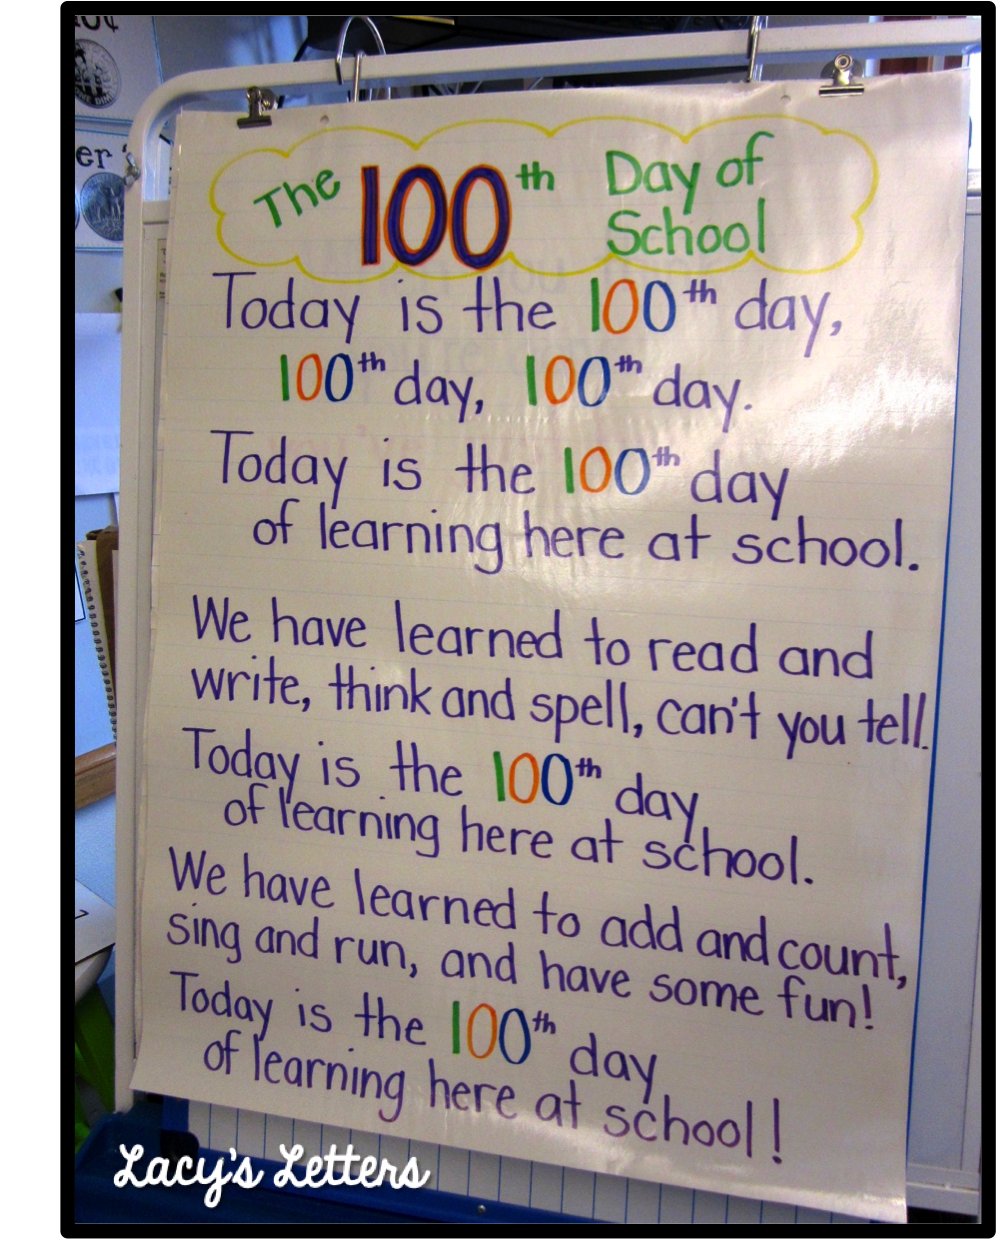 The 100th Day of
School
Today is the 100th day,
100th day, 100th day.
Today is the 100th day
of learning here at school.
We have learned to read and
write, think and spell, can't you tell.
Today is the 100th day
of learning here at school.
We have learned to add and count,
sing and run, and have some fun!
Today is the 100th day
of learning here at school!
Lacy's Letters